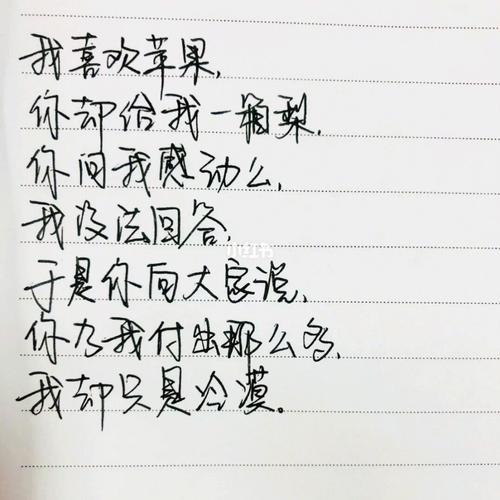 我喜欢苹果,
你却给我一箱梨,
你问我感动么,
我没法回答,
小红书
于是你向大家说,
你为我付出那么多,
我却只是冷漠。